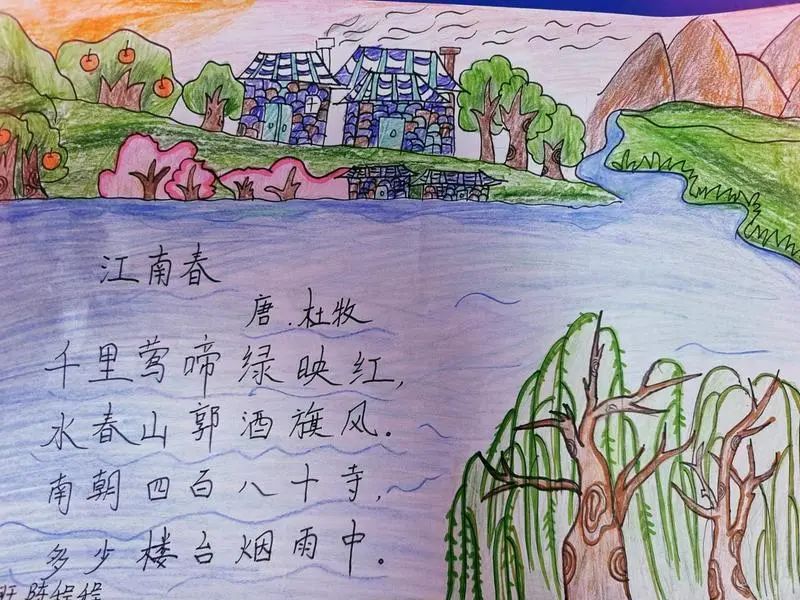 江南春
唐.杜牧
千里莺啼绿映红,
水春山郭酒旗风.
南朝四百八十寺,
多少楼台烟雨中.
陈程程